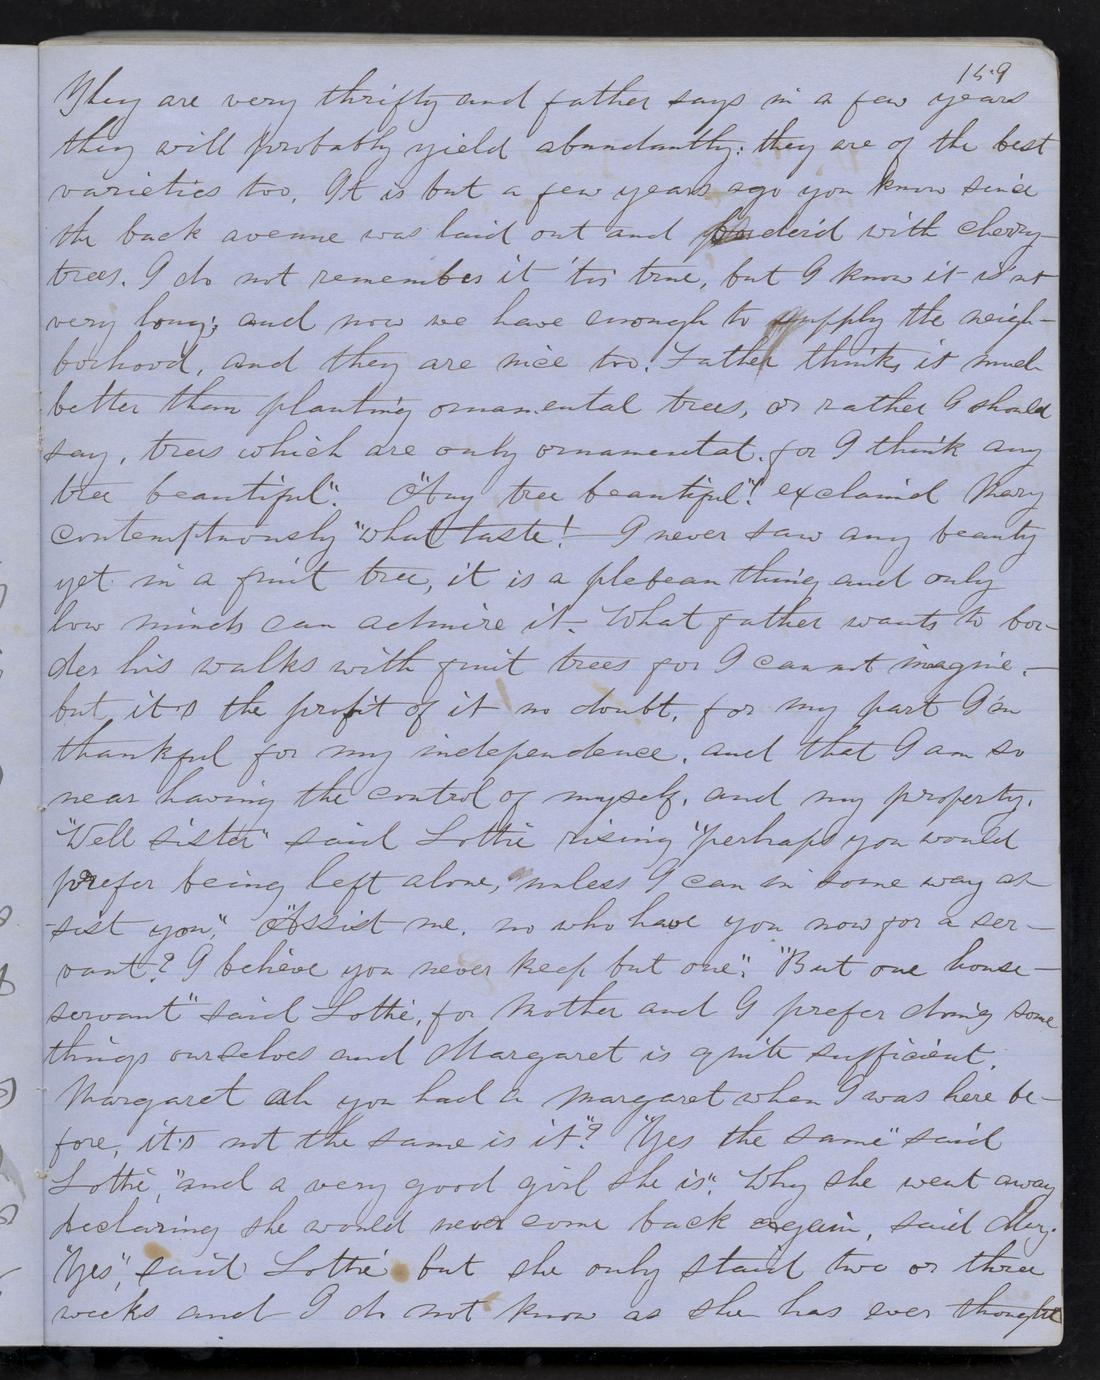 159
They are very thrifty and father says in a few years
they will probably yield abundantly: they are of the best
varieties too. It is but a few years ago you know since
the back avenue was laid out and borderd with cherry-
trees. I do not remember it 'tis true, but I know it is'nt
very long; and now we have enough to supply the neigh-
borhood, and they are nice too. Father thinks it much
better than planting ornamental trees, or rather I should
say, trees which are only ornamental. for I think any
tree beautiful". "Any tree beautiful"! exclaimd Mary
contemptuously "what taste! — I never saw any beauty
yet in a fruit tree, it is a plebean thing and only
low minds can admire it. What father wants to bor-
der his walks with fruit trees for I can not imagine. —
but it's the profit of it no doubt, for my part I'm
thankful for my independence, and that I am so
near having the control of myself, and my property.
"Well sister" said Lottie rising "perhaps you would
prefer being left alone, unless I can in some way as-
sist you," "Assist me. no who have you now for a ser-
vant? I believe you never keep but one". "But one house-
servant" said Lottie, for Mother and I prefer doing some
things ourselves and Margaret is quite sufficient.
Margaret ah you had a Margaret when I was here be-
fore, it's not the same is it"? "Yes the same" said
Lottie, "and a very good girl she is". Why she went away
declaring she would never come back again, said Mary.
"Yes", said Lottie but she only staid two or three
weeks and I do not know as she has ever thought